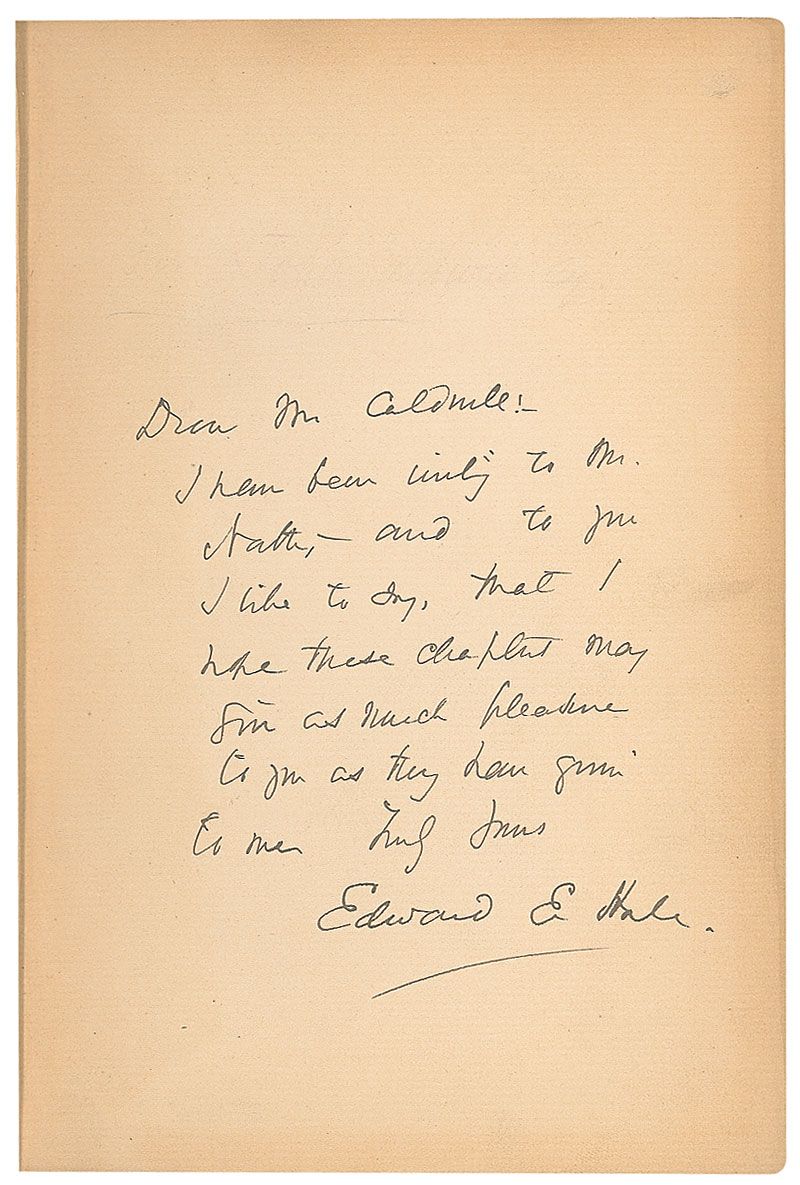 Dear Mr Caldwell:—
I have been writing to Mr.
— and to you
I like to say, that I
hope these chapters may
give as much pleasure
to you as they have given
to me. Truly Yours
Edward E Hale.